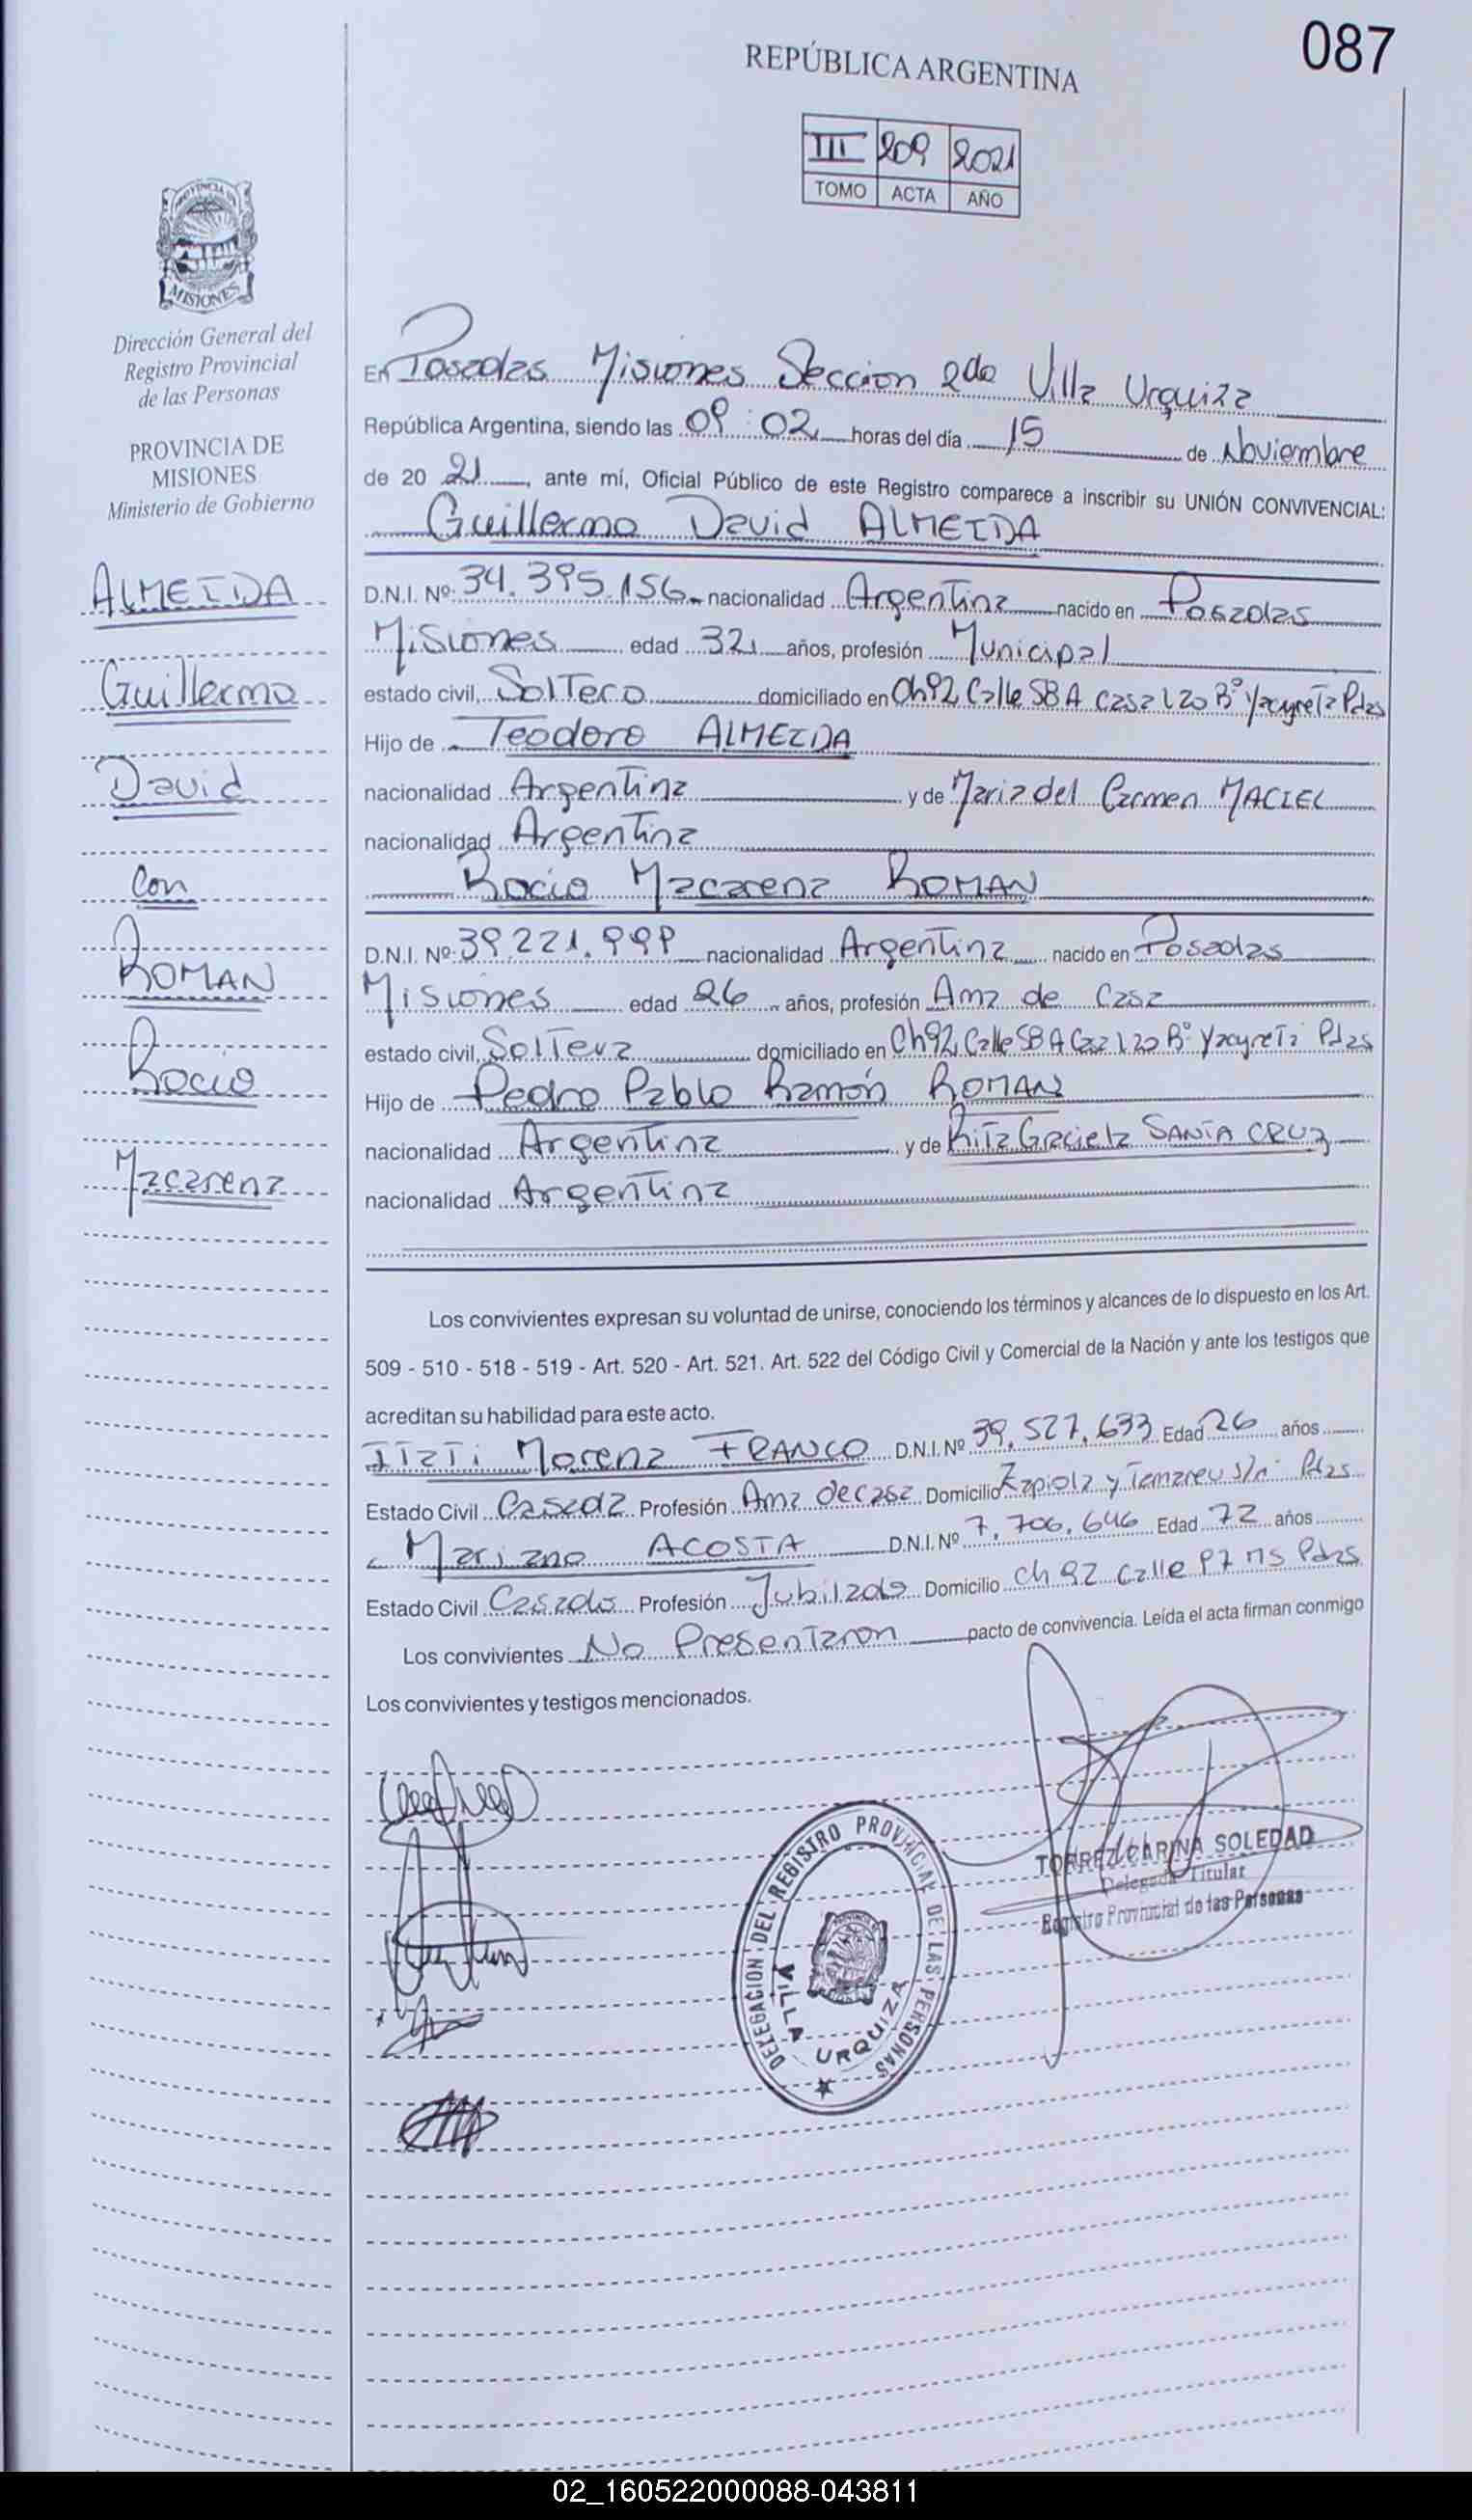 087
REPÚBLICA ARGENTINA
III 209 2021
TOMO ACTA AÑO
MISIONES
Dirección General del
Registro Provincial
de las Personas
PROVINCIA DE
MISIONES
Ministerio de Gobierno
ALMEIDA
Guillermo
David
Con
ROMAN
Rocio
Macarena
En Posadas Misiones Seccion 2da Villa Urquiza
República Argentina, siendo las 09:02 horas del día 15 de Noviembre
de 20 21, ante mí, Oficial Público de este Registro comparece a inscribir su UNIÓN CONVIVENCIAL:
Guillermo David ALMEIDA
D.N.I. Nº: 34.395.156 nacionalidad Argentina nacido en Posadas
Misiones edad 32 años, profesión Municipal
estado civil, Soltero domiciliado en Ch92 Calle 58 A Casa 120 Bº Yacyreta Pdas
Hijo de Teodoro ALMEIDA
nacionalidad Argentina y de Maria del Carmen MACIEL
nacionalidad Argentina
Rocio Macarena ROMAN
D.N.I. Nº: 39.221.999 nacionalidad Argentina nacido en Posadas
Misiones edad 26 años, profesión Ama de casa
estado civil, Soltera domiciliado en Ch92 Calle 58 A Casa 120 Bº Yacyreta Pdas
Hijo de Pedro Pablo Ramón ROMAN
nacionalidad Argentina y de Rita Graciela SANTA CRUZ
nacionalidad Argentina
Los convivientes expresan su voluntad de unirse, conociendo los términos y alcances de lo dispuesto en los Art.
509 - 510 - 518 - 519 - Art. 520 - Art. 521. Art. 522 del Código Civil y Comercial de la Nación y ante los testigos que
acreditan su habilidad para este acto.
Itati Morena FRANCO D.N.I. Nº 39.527.633 Edad 26 años
Estado Civil Casada Profesión Ama de casa Domicilio Zapiola y Tamareu s/n Pdas
Mariano ACOSTA D.N.I. Nº 7.706.646 Edad 72 años
Estado Civil Casado Profesión Jubilado Domicilio Ch 92 calle 97 Pdas
Los convivientes No Presentaron pacto de convivencia. Leída el acta firman conmigo
Los convivientes y testigos mencionados.
DELEGACION DEL REGISTRO PROVINCIAL DE LAS PERSONAS
VILLA URQUIZA
TORREZ CARINA SOLEDAD
Delegada Titular
Registro Provincial de las Personas
02_160522000088-043811